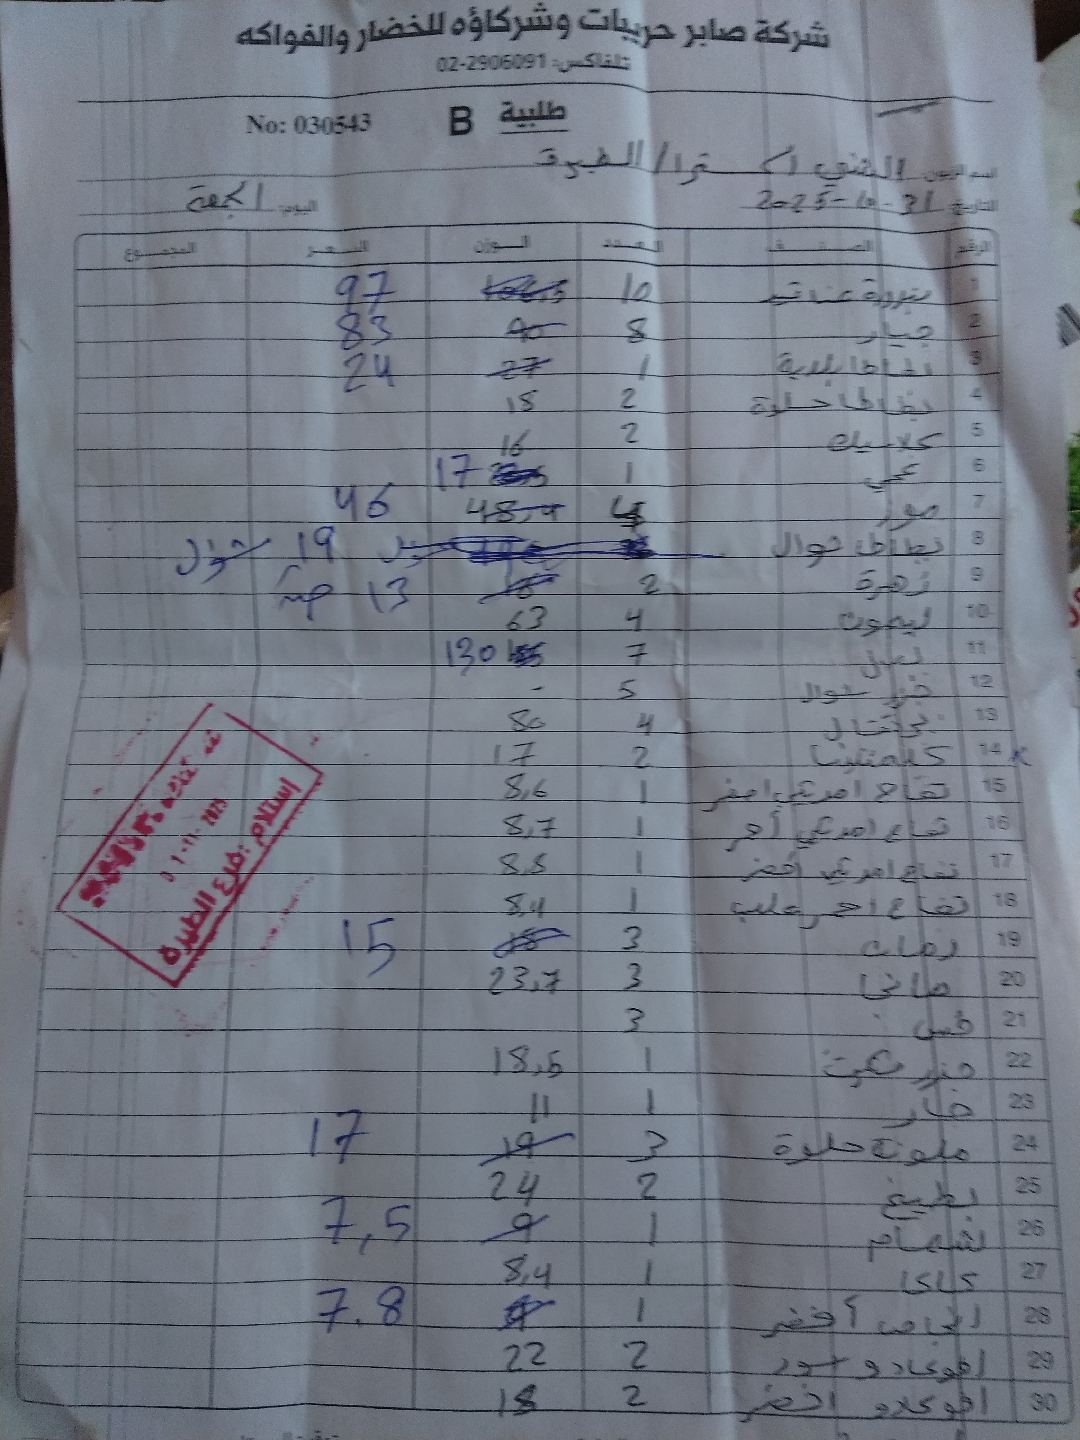 شركة صابر حريبات وشركاؤه للخضار والفواكه
تلفاكس: 02-2906091
No: 030543 B طلبية
اسم الزبون: الغني اكسترا / الطيرة
التاريخ: 31-10-2025 اليوم: الجمعة
الرقم الصنف العدد الوزن السعر المجموع
1 بندورة عناقيد 10 102,5 97
2 خيار 8 90 83
3 بطاطا بلدية 1 27 24
4 بطاطا حلوة 2 18
5 2 16
6 1 17
7 موز 48,4 46
8 بطاطا شوال 19 شوال
9 زهرة 2 13
10 ليمون 4 63
11 بصل 7 130
12 جزر شوال 5 -
13 برتقال 4 80
14 كلمنتينا 2 17
15 تفاح امريكي اصفر 1 8,6
16 تفاح امريكي أحمر 1 8,7
17 تفاح امريكي أخضر 1 8,8
18 تفاح احمر علب 1 8,4
19 رمان 3 18 15
20 مانجا 3 23,7
21 خس 3
22 1 18,5
23 1 11
24 ملونة حلوة 3 19 17
25 بطيخ 2 24
26 شمام 1 9 7,5
27 كاكا 1 8,4
28 اجاص أخضر 1 7.8
29 افوكادو 2 22
30 افوكادو اخضر 2 18
استلام: فرع الطيرة
01-11-2025